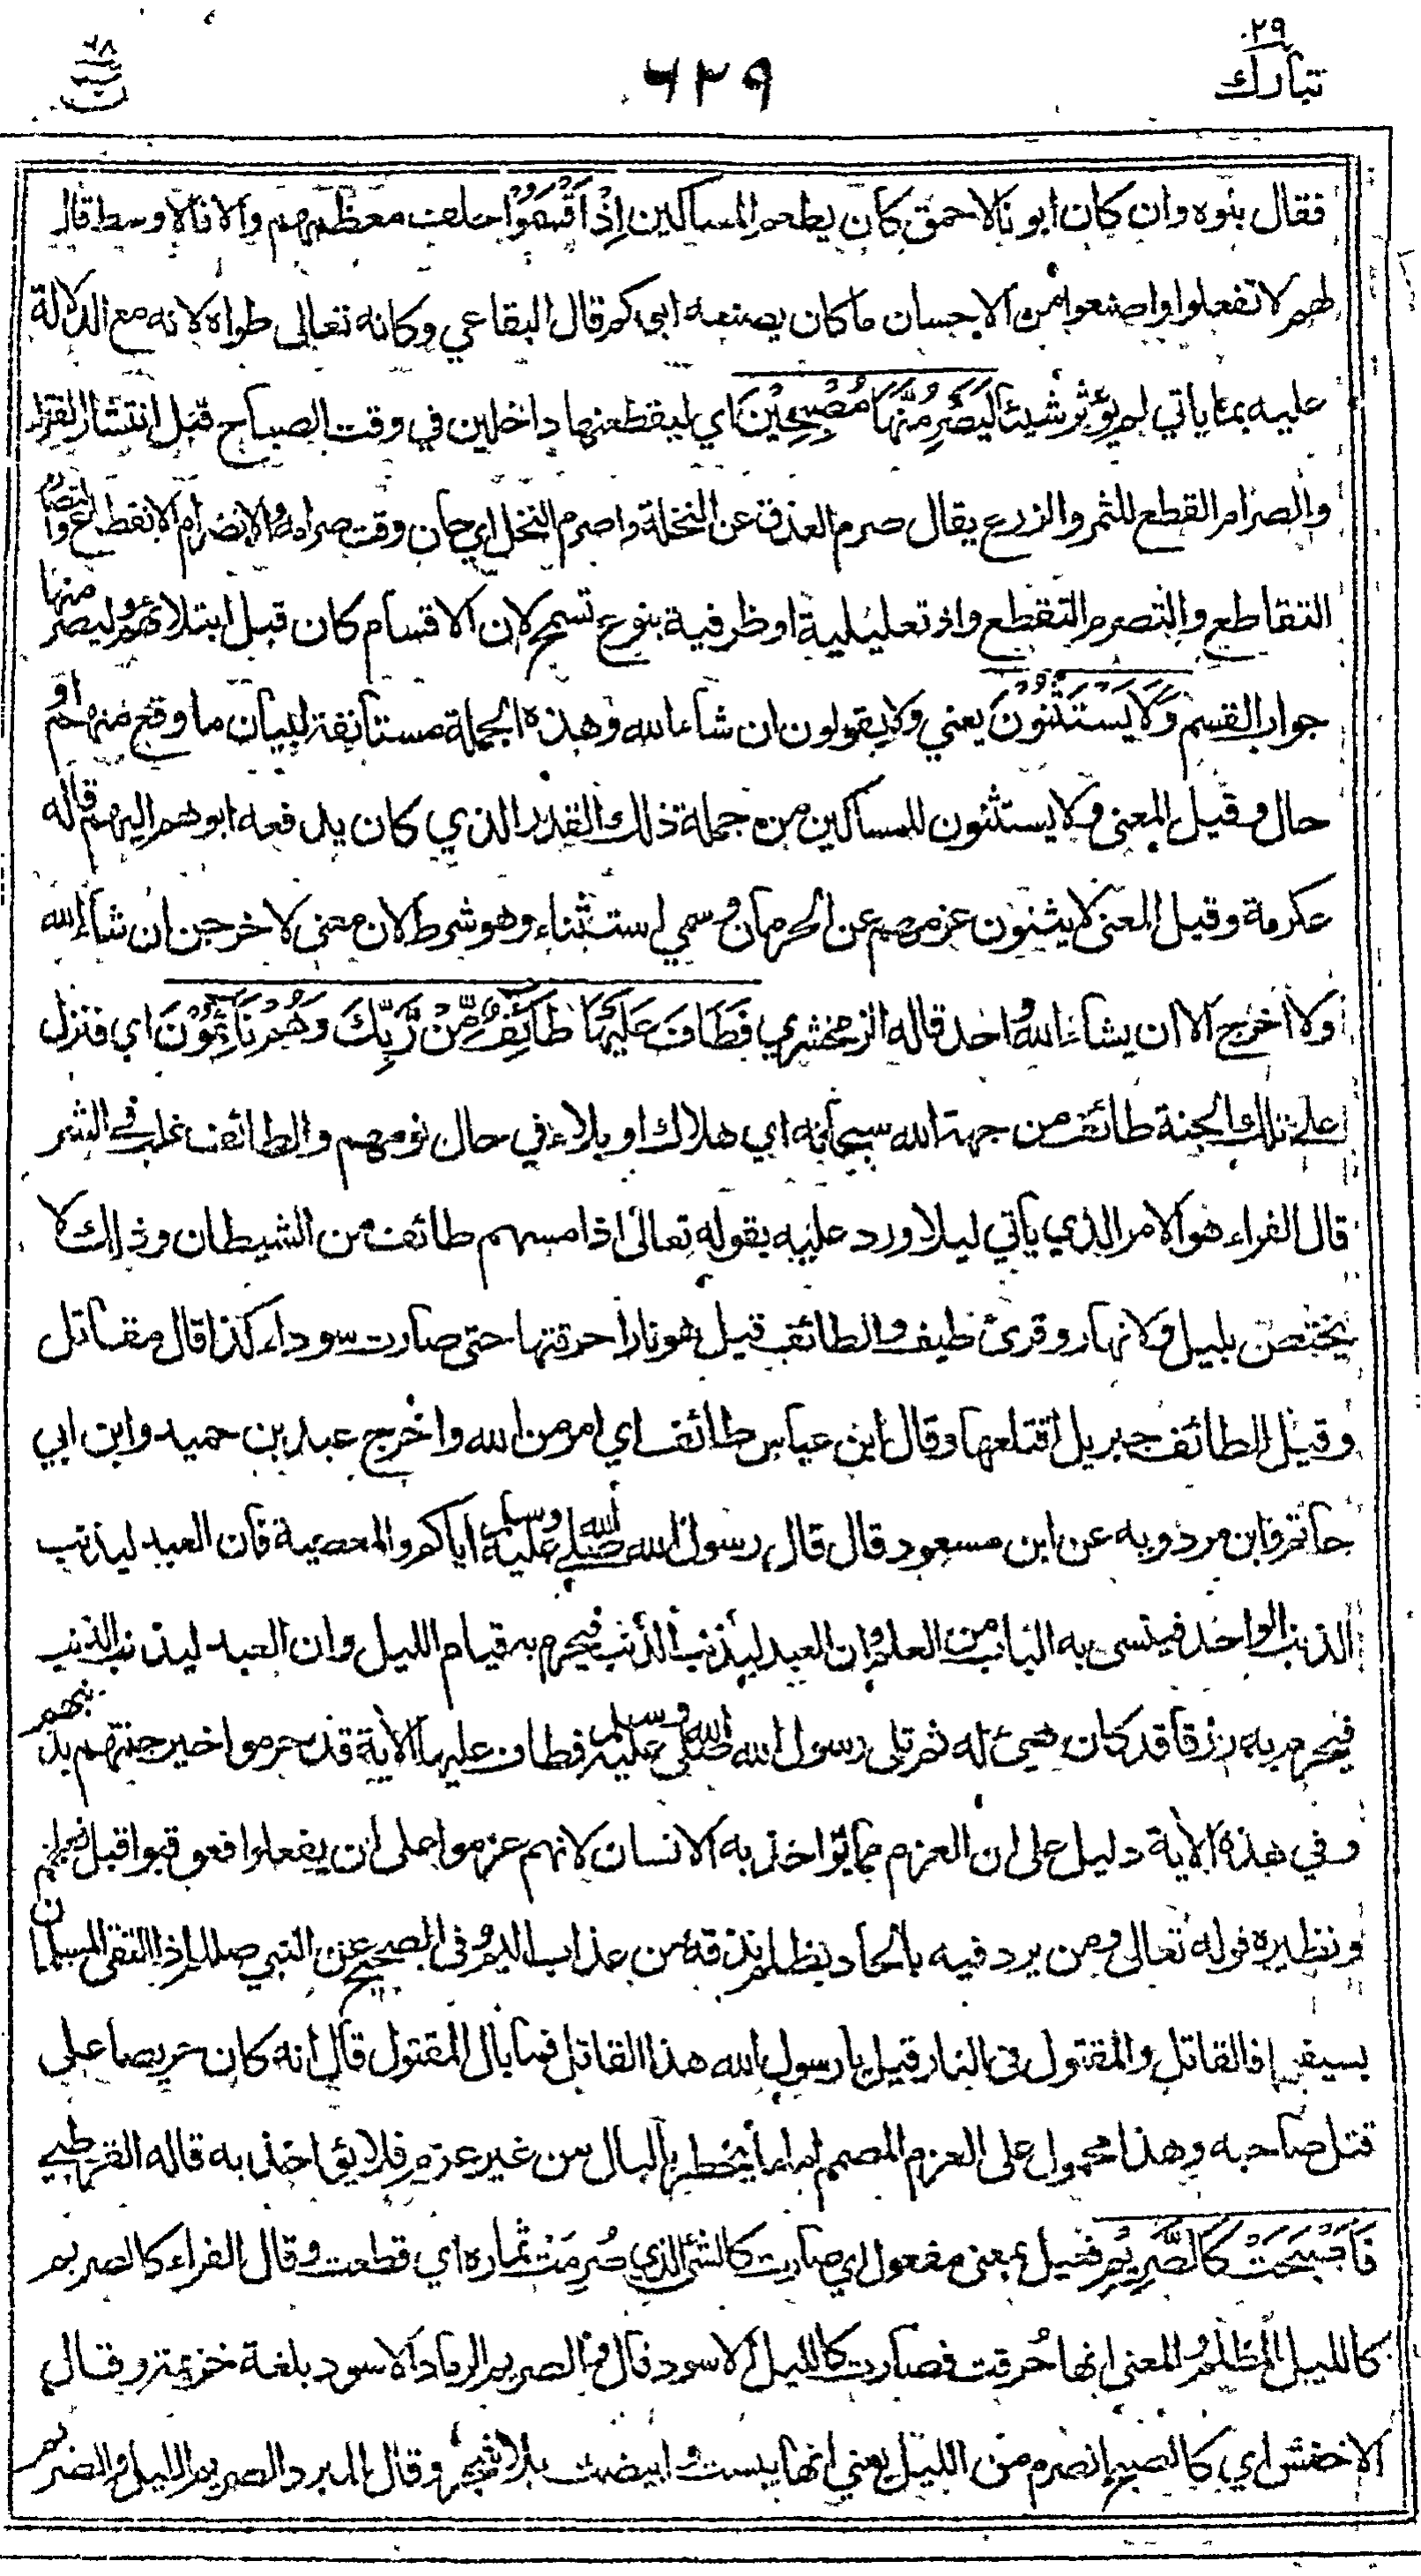 ٢٩
تبارك
٦٢٩
٦٨
ن
فقال بنوه وان كان ابونا لاحمق كان يطعم المساكين اِذْ اَقْسَمُوْا حلف معظمهم والا فالاوسط قال
لهم لا تفعلوا واصنعوا من الاحسان ما كان يصنعه ابوكم قال البقاعي وكانه تعالى طواه لانه مع الدلالة
عليه بما ياتي لم يؤثر شيئا لَيَصْرِمُنَّهَا مُصْبِحِيْنَ اي ليقطعنها داخلين في وقت الصباح قبل انتشار الفقراء
والصرام القطع للثمر والزرع يقال صرم العذق عن النخلة واصرم النخل اي حان وقت صرامه والانصرام الانقطاع والتصارم
التقاطع والتصرم التقطع واذ تعليلية او ظرفية بنوع تسمح لان الاقسام كان قبل ابتلائهم وليصرمنها
جواب القسم وَلَا يَسْتَثْنُوْنَ يعني ولا يقولون ان شاء الله وهذه الجملة مستانفة لبيان ما وقع منهم او
حال وقيل المعنى ولا يستثنون للمساكين من جملة ذلك القدر الذي كان يدفعه ابوهم اليهم قاله
عكرمة وقيل المعنى لا يثنون عزمهم عن الحرمان وسمي استثناء وهو شرط لان معنى لاخرجن ان شاء الله
ولا اخرج الا ان يشاء الله واحد قاله الزمخشري فَطَافَ عَلَيْهَا طَائِفٌ مِّنْ رَّبِّكَ وَهُمْ نَائِمُوْنَ اي فنزل
على تلك الجنة طائف من جهة الله سبحانه اي هلاك او بلاء في حال نومهم والطائف غلب في الشر
قال الفراء هو الامر الذي ياتي ليلا ورد عليه بقوله تعالى اذا مسهم طائف من الشيطان وذلك لا
يختص بليل ولا نهار وقرئ طيف والطائف قيل هو نار احرقتها حتى صارت سوداء كذا قال مقاتل
وقيل الطائف جبريل اقتلعها وقال ابن عباس طائف اي امر من الله واخرج عبد بن حميد وابن ابي
حاتم وابن مردويه عن ابن مسعود قال قال رسول الله صلى الله عليه وسلم اياكم والمعصية فان العبد ليذنب
الذنب الواحد فينسى به الباب من العلم وان العبد ليذنب الذنب فيحرم به قيام الليل وان العبد ليذنب الذنب
فيحرم به رزقا قد كان هيئ له ثم تلى رسول الله صلى الله عليه وسلم فطاف عليها الاية قد حرموا خير جنتهم بذنبهم
وفي هذه الاية دليل على ان العزم مما يؤاخذ به الانسان لانهم عزموا على ان يفعلوا فعوقبوا قبل فعلهم
ونظيره قوله تعالى ومن يرد فيه بالحاد بظلم نذقه من عذاب اليم وفي الصحيح عن النبي صللم اذا التقى المسلمان
بسيفيهما فالقاتل والمقتول في النار قيل يا رسول الله هذا القاتل فما بال المقتول قال انه كان حريصا على
قتل صاحبه وهذا محمول على العزم المصمم اما ما يخطر بالبال من غير عزم فلا يؤاخذ به قاله القرطبي
فَاَصْبَحَتْ كَالصَّرِيْمِ فعيل بمعنى مفعول اي صارت كالشئ الذي صُرِمَتْ ثماره اي قطعت وقال الفراء كالصريم
كالليل المظلم والمعنى انها حُرقت فصارت كالليل الاسود قال والصريم الرماد الاسود بلغة خزيمة وقال
الاخفش اي كالصبح انصرم من الليل يعني انها يبست وابيضت بلا شجر وقال المبرد الصريم الليل والصريم